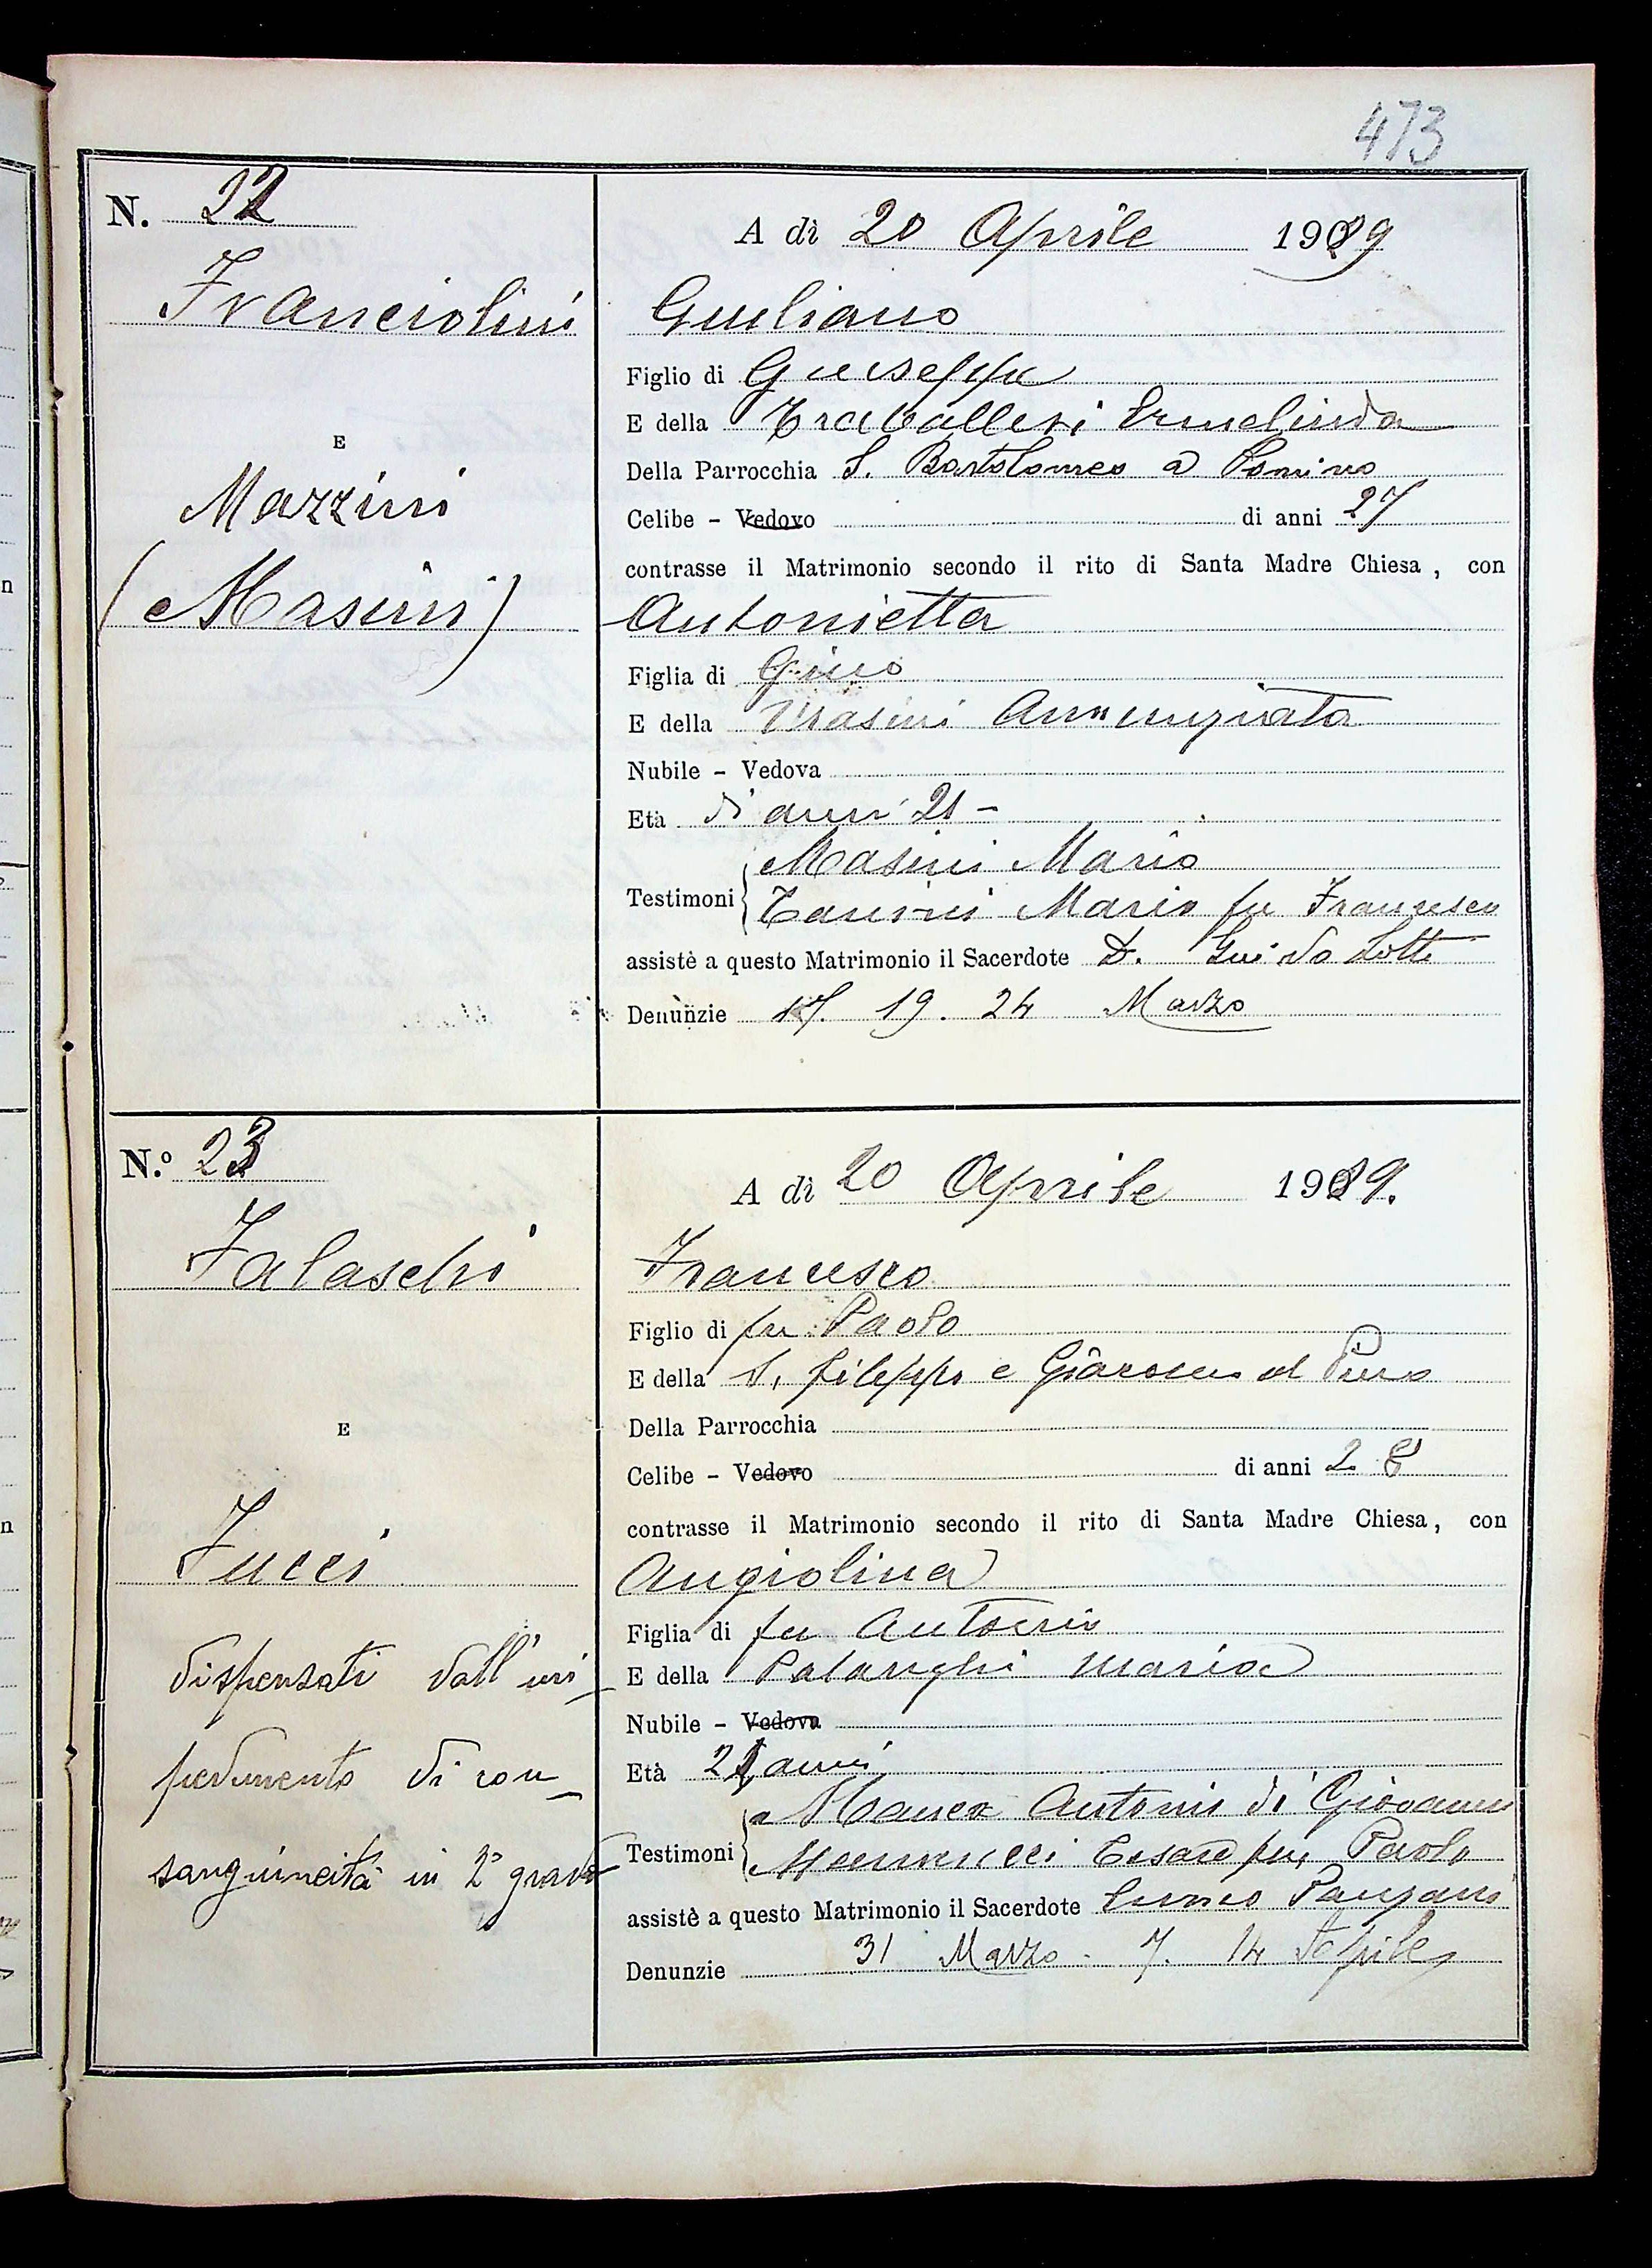 473
N. 22
A dì 20 Aprile 1919
Franciolini
Giuliano
Figlio di Giuseppe
E della Travalleri Ermelinda
E
Della Parrocchia S. Bartolomeo a Pomino
Mazzini
Celibe – Vedovo di anni 27
contrasse il Matrimonio secondo il rito di Santa Madre Chiesa, con
(Masini)
Antonietta
Figlia di Gino
E della Masini Annunziata
Nubile – Vedova
Età di anni 21 –
Testimoni Masini Mario
Mario fu Francesco
assistè a questo Matrimonio il Sacerdote D. Guido Lotti
Denunzie 17. 19. 24 Marzo
N.º 23
A dì 20 Aprile 1919.
Falaschi
Francesco
Figlio di fu Paolo
E della S. Filippo e Giacomo al
E
Della Parrocchia
Celibe – Vedovo di anni 28
contrasse il Matrimonio secondo il rito di Santa Madre Chiesa, con
Fucci
Angiolina
Figlia di fu Antonio
dispensati dall'im-
E della Palanghi Maria
Nubile – Vedova
pedimento di con-
Età 21 anni
Testimoni Antonio di Giovanni
sanguineità in 2º grado
Cesare fu Paolo
assistè a questo Matrimonio il Sacerdote Panzani
Denunzie 31 Marzo - 7. 14 Aprile